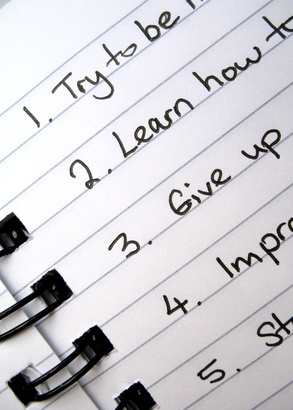 1. Try to be
2. Learn how to
3. Give up
4.
5.